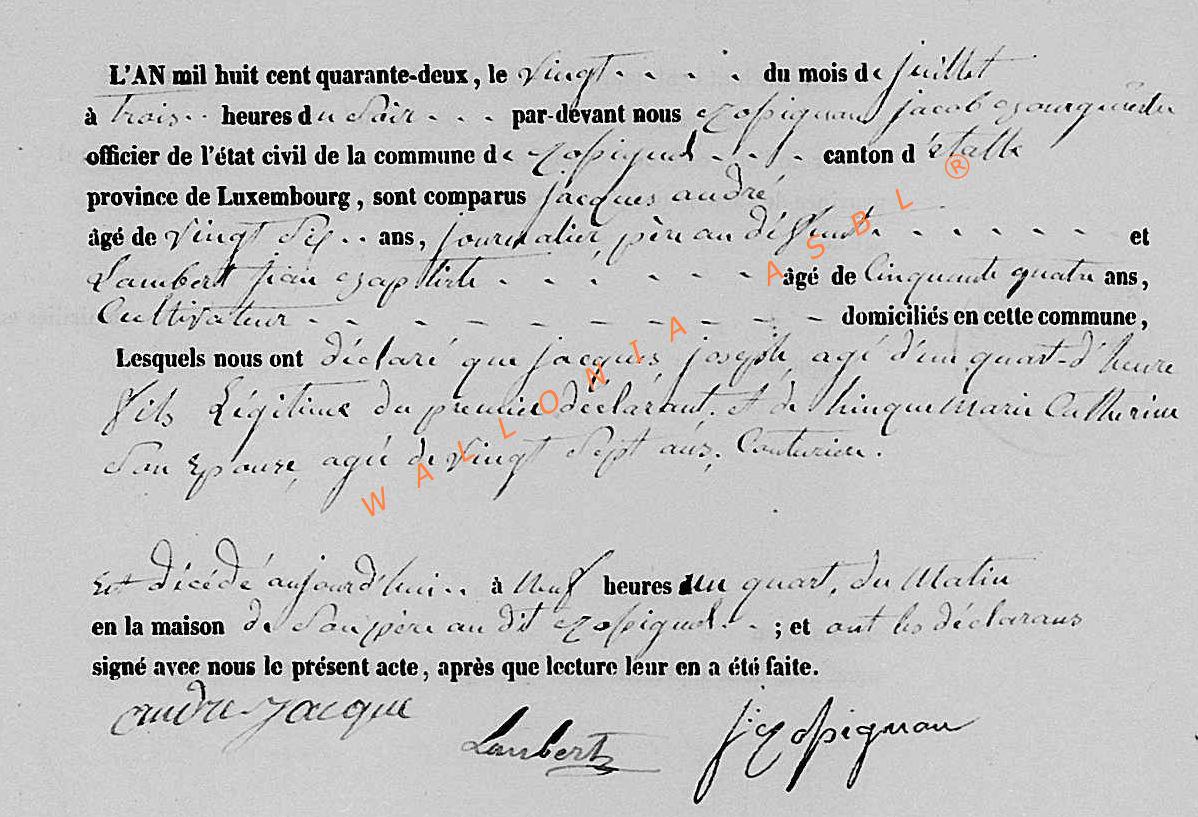 L'AN mil huit cent quarante-deux, le vingt . . . . du mois de juillet
à trois . . heures du Soir . . . par-devant nous Rossignon jacob Bourguemestre
officier de l'état civil de la commune de Rossignol . . . . canton d'étalle
province de Luxembourg, sont comparus jacques andré
âgé de vingt Six . . ans, journalier, père au défunt . . . . . . et
Lambert jean Baptiste . . . . . . . âgé de Cinquante quatre ans,
Cultivateur . . – – – – – – – – – domiciliés en cette commune,
Lesquels nous ont déclaré que jacques, joseph, agé d'un quart-d'heure
fils Légitime du premier déclarant, et de hinque Marie Catherine
Son Epouse, agée de vingt Sept ans, Couturière.
Est décédé aujourd'hui . . à neuf heures un quart, du Matin
en la maison de Son père au dit Rossignol . . ; et ont les déclarans
signé avec nous le présent acte, après que lecture leur en a été faite.
andre jacque
Lambert
J: Rossignon
WALLONIA ASBL ®